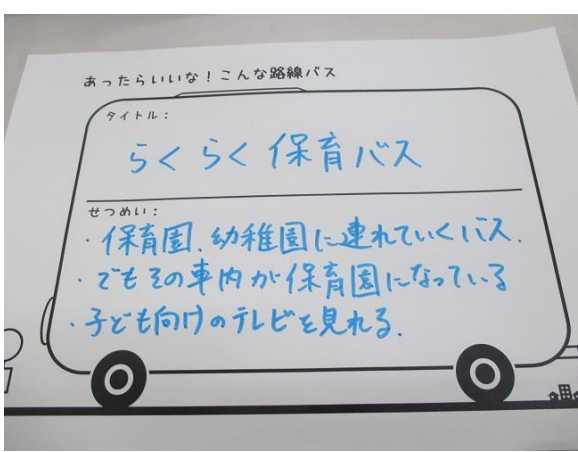 あったらいいな！こんな路線バス
タイトル：
らくらく保育バス
せつめい：
・保育園、幼稚園に連れていくバス.
・でもその車内が保育園になっている
・子ども向けのテレビを見れる.